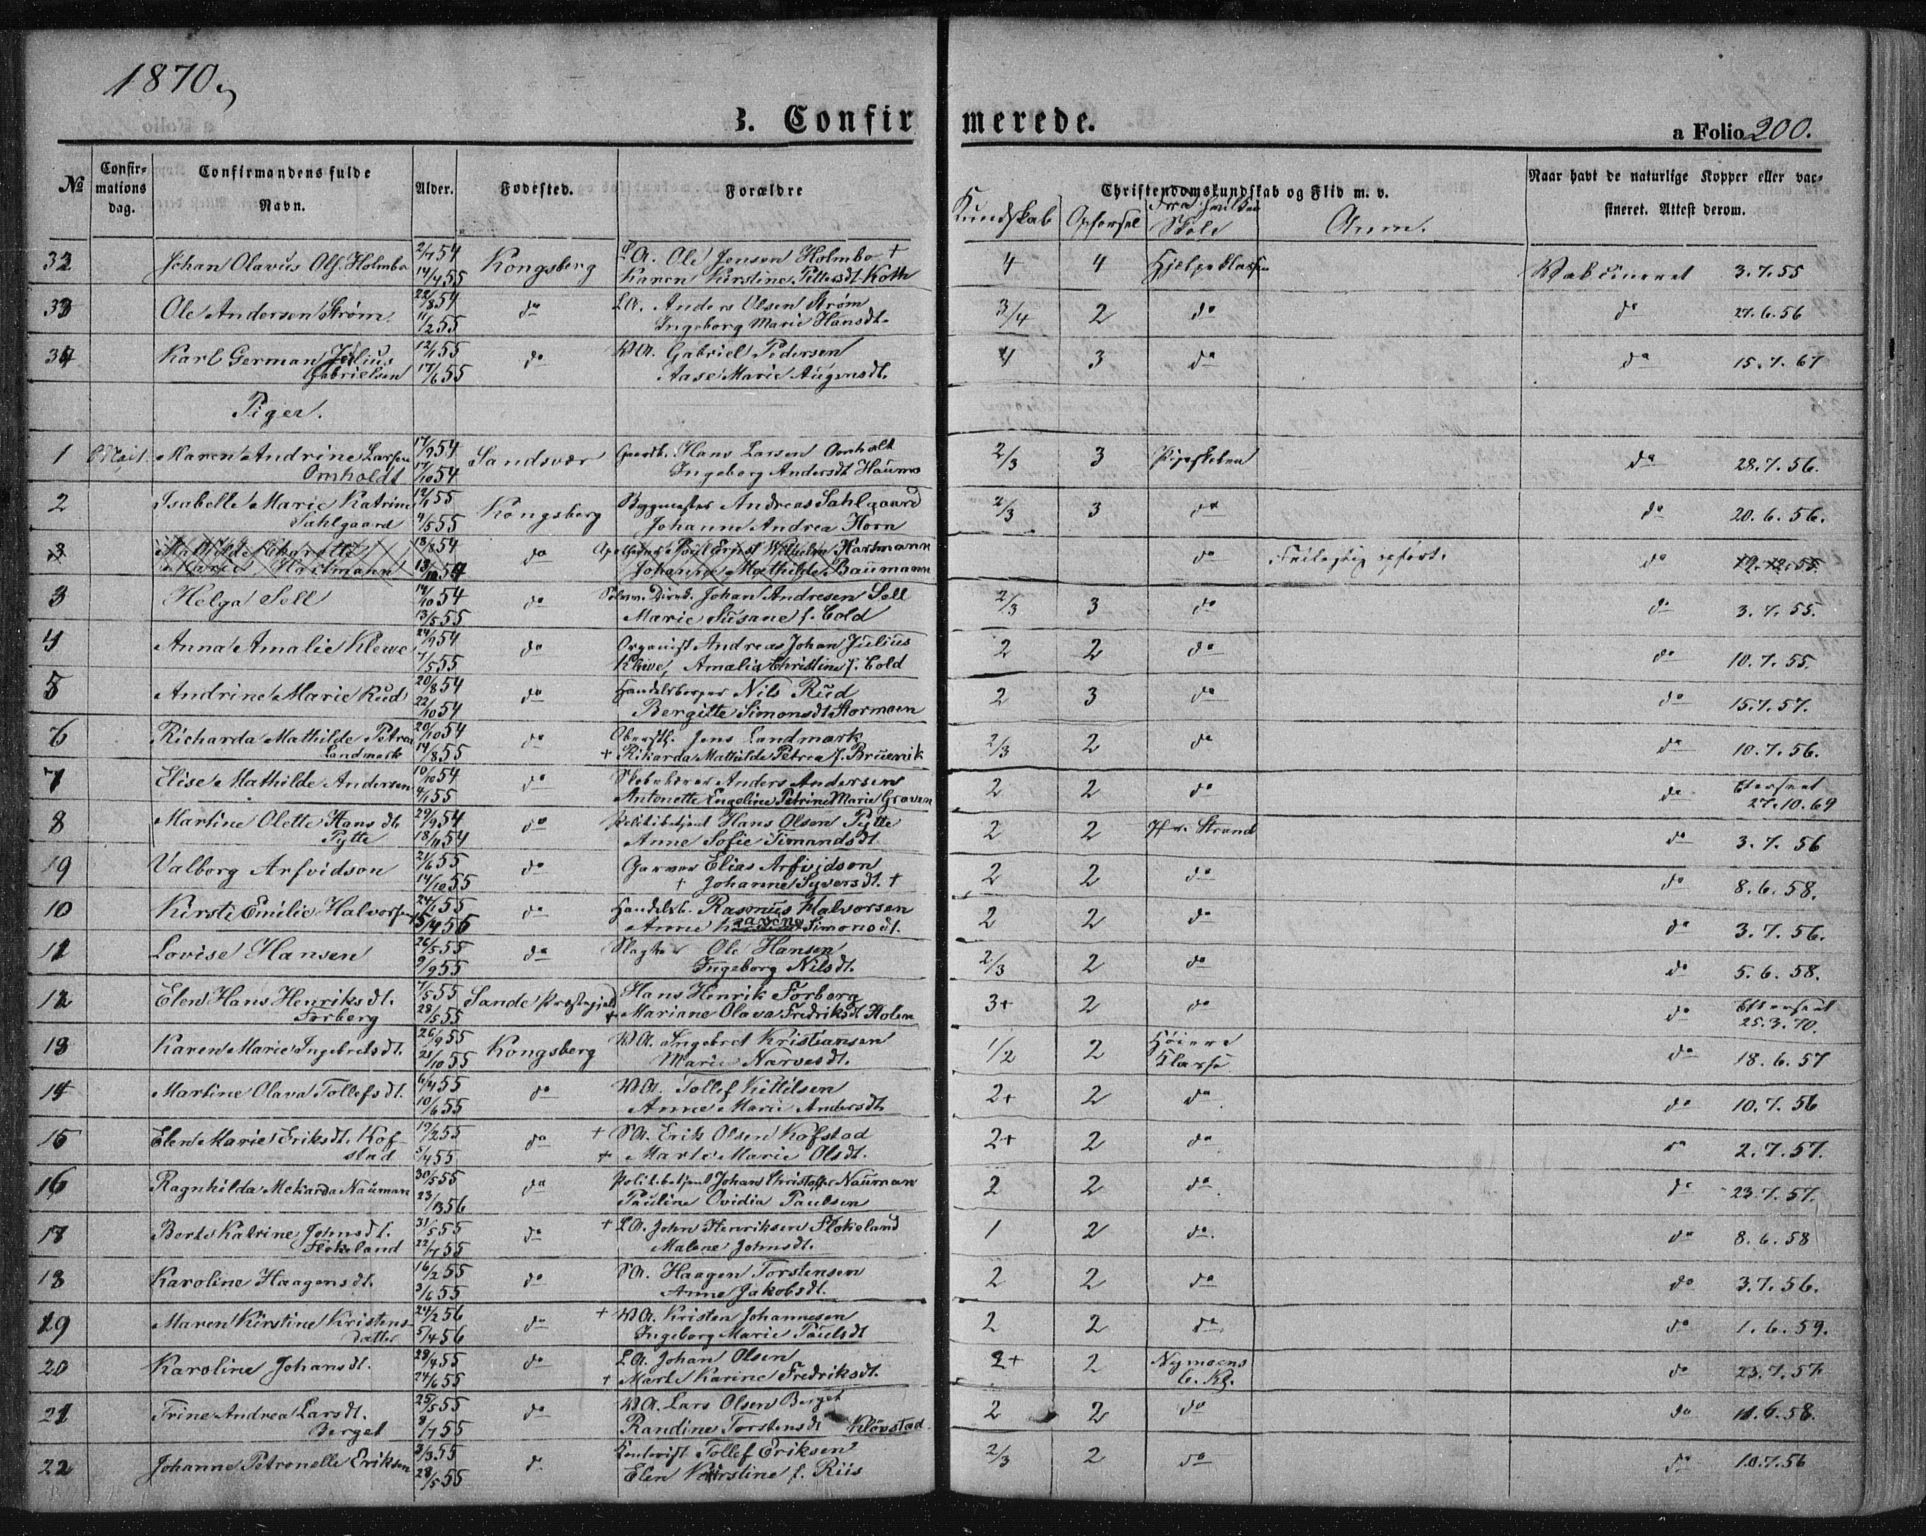 1870.
B. Confirmerede.
a Folio 200.
No
Confir-
mations
dag.
Confirmandens fulde
Navn.
Alder.
Fødested.
Forældre
Christendomskundskab og Flid m. v.
Kundskab
Opførsel
Skole
Anm.
Naar havt de naturlige Kopper eller vac-
sineret. Attest derom.
32 Johan Olavus Ols. Holmbo 2/7 54 14/4 55 Kongsberg LA. Ole Jensen Holmbo + 4 4 Hjelpeklassen Vakcineret 3.7.55
Karen Kirstine Pettersdt Koth
33 Ole Andersen Strøm 22/8 54 11/2 55 do LA. Anders Olsen Strøm 3/4 2 do do 27.6.56
Ingeborg Marie Hansdt.
34 Karl German Julius 12/1 55 17/6 55 do VA. Gabriel Pedersen 4 3 do do 15.7.67
Gabrielsen Aase Marie Augensdt.
Piger.
1 Maren Andrine Larsen 17/9 54 17/10 54 Sandsvær Gaardb. Hans Larsen Omholt 2/3 3 Pigeskolen do 28.7.56.
Omholdt Ingeborg Andersdt Haums
2 Isabelle Marie Katrine 12/1 55 9/5 55 Kongsberg Bygmester Andreas Sahlgaard 2/3 3 do do 20.6.56.
Sahlgaard Johanne Andrea Horn
3 Mathilde Charotte 18/8 54 do Apotheker Poul Ernst Wilhelm Hartmann do Feilagtig opført. do 19.12.55
Marie Hartmann Johanne Mathilde Baumann
3 Helga Sell 14/10 54 13/5 55 do Johan Andresen Sell 2/3 3 do do 3.7.55.
Marie Susane f. Cold
4 Anna Amalie Klewe 24/9 54 7/5 55 do Organist Andreas Johan Julius 2 2 do do 10.7.55.
Klewe, Amalia Christine f. Cold
5 Andrine Marie Rud 20/8 54 22/10 54 do Handelsborger Nils Rud 2 3 do do 15.7.57.
Bergitte Simonsdt Stormoen
6 Richarda Mathilde Petrea 20/10 54 14/8 55 do Oberstl. Jens Landmark 2/3 2 do do 10.7.56.
Landmark + Rikarda Mathilde Petrea f. Bruenik
7 Elise Mathilde Andersen 10/10 54 4/1 55 do Anders Andersen 2 2 do do 27.10.69
Antonette Engeline Petrine Marie Graven
8 Martine Olette Hansdt. 29/9 54 18/11 54 do Politibetjent Hans Olsen Pytte 2 2 Hr. Strand do 3.7.56
Pytte Anne Sofie Timandsdt.
9 Valborg Arfvidson 21/6 55 14/10 55 do Garver Elias Arfvidson 2 2 do do 8.6.58.
+ Johanne Syversdt. +
10 Kirsti Emilie Halvorsen 24/1 55 5/4 56 do Handelsb. Rasmus Halvorsen 2 2 do do 3.7.56.
Anne Simonsdt.
11 Lovise Hansen 26/5 55 9/9 55 do Slagter Ole Hansen 2/3 2 do do 5.6.58.
Ingeborg Nilsdt.
12 Elen Hans Henriksdt. 7/5 55 28/5 55 Sande Præstegjeld Hans Henrik Forberg 3+ 2 do do Efterseet
Forberg + Mariane Olava Fredriksdt Holen 25.3.70.
13 Karen Marie Ingebretsdt. 26/9 55 21/10 55 Kongsberg VA. Ingebret Kristiansen 1/2 2 Høiere do 18.6.57
Marie Narvesdt. Klasse
14 Martine Olava Tollefsdt. 6/4 55 10/6 55 do VA. Tollef Kittilsen 2+ 2 do do 10.7.56
Anne Marie Andersdt.
15 Elen Marie Eriksdt. Kof 19/2 55 5/4 55 do + SA. Erik Olsen Kofstad 2+ 2 do 2.7.57.
stad + Marte Marie Olsdt.
16 Ragnhilda Mekarda Nauman 30/5 55 do Politibetjent Johan Christofer Nauman 2 2 do do 23.7.57.
Pauline Ovidia Paulsen
17 Berte Katrine Johnsdt. 31/5 55 22/7 55 do + LA. John Henriksen Flokeland 1 2 do. do 8.6.58
Flokeland Malene Johnsdt.
18 Karoline Haagensdt. 16/2 55 3/6 55 do SA. Haagen Torstensen 2 2 do do 3.7.56.
Anne Jakobsdt.
19 Maren Kirstine Kristens- 24/2 56 5/4 56 do + VA. Kristen Johannesen 2 2 do do 1.6.59.
datter Ingeborg Marie Paulsdt
20 Karoline Johansdt. 28/4 55 24/6 55 do LA. Johan Olsen 2+ 2 Nymoens do 23.7.57.
+ Marte Karine Fredriksdt.
21 Trine Andrea Larsdt. 25/5 55 8/7 55 do VA. Lars Olsen Berget 2 2 do do 11.6.58.
Berget Randine Torstensdt Kløvstad
22 Johanne Petronelle Eriksen 2/3 55 28/5 55 d. Tollef Eriksen 2/3 2 do do 10.7.56
Elen Kirstine f. Riis